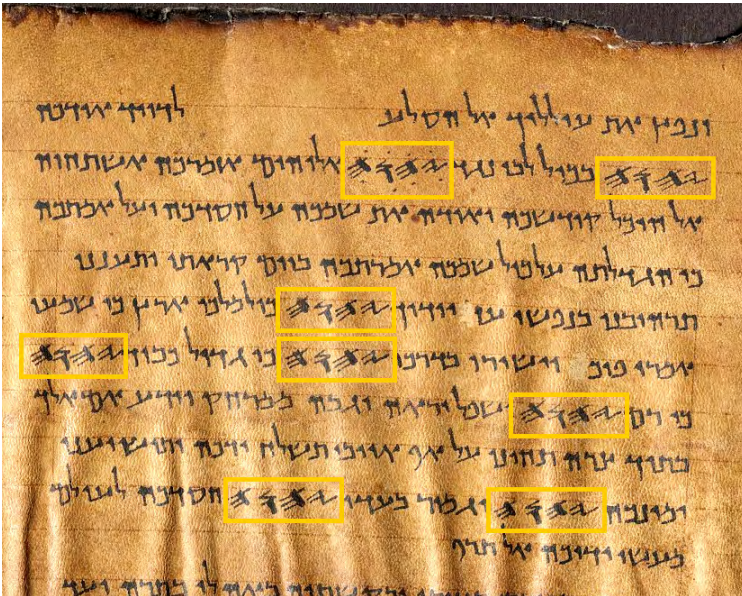 ונפץ את עולליך אל הסלע לדויד אודכה
𐤉𐤄𐤅𐤄 בכול לבי נגד 𐤉𐤄𐤅𐤄 אלוהים אזמרכה אשתחוה
אל היכל קודשכה ואודה את שמכה על חסדכה ועל אמתכה
כי הגדלתה על כול שמכה אמרתכה ביום קראתי ותענני
תרהיבני בנפשי עוז יודוך 𐤉𐤄𐤅𐤄 כול מלכי ארץ כי שמעו
אמרי פיכ וישירו בדרכי 𐤉𐤄𐤅𐤄 כי גדול כבוד 𐤉𐤄𐤅𐤄
כי רם 𐤉𐤄𐤅𐤄 ושפל יראה וגבה ממרחק יידע אם אלך
בתוך צרה תחיני על אף אויבי תשלח ידכה ותושיעני
ימינכה 𐤉𐤄𐤅𐤄 יגמור בעדי 𐤉𐤄𐤅𐤄 חסדכה לעולם
מעשי ידיכה אל תרף